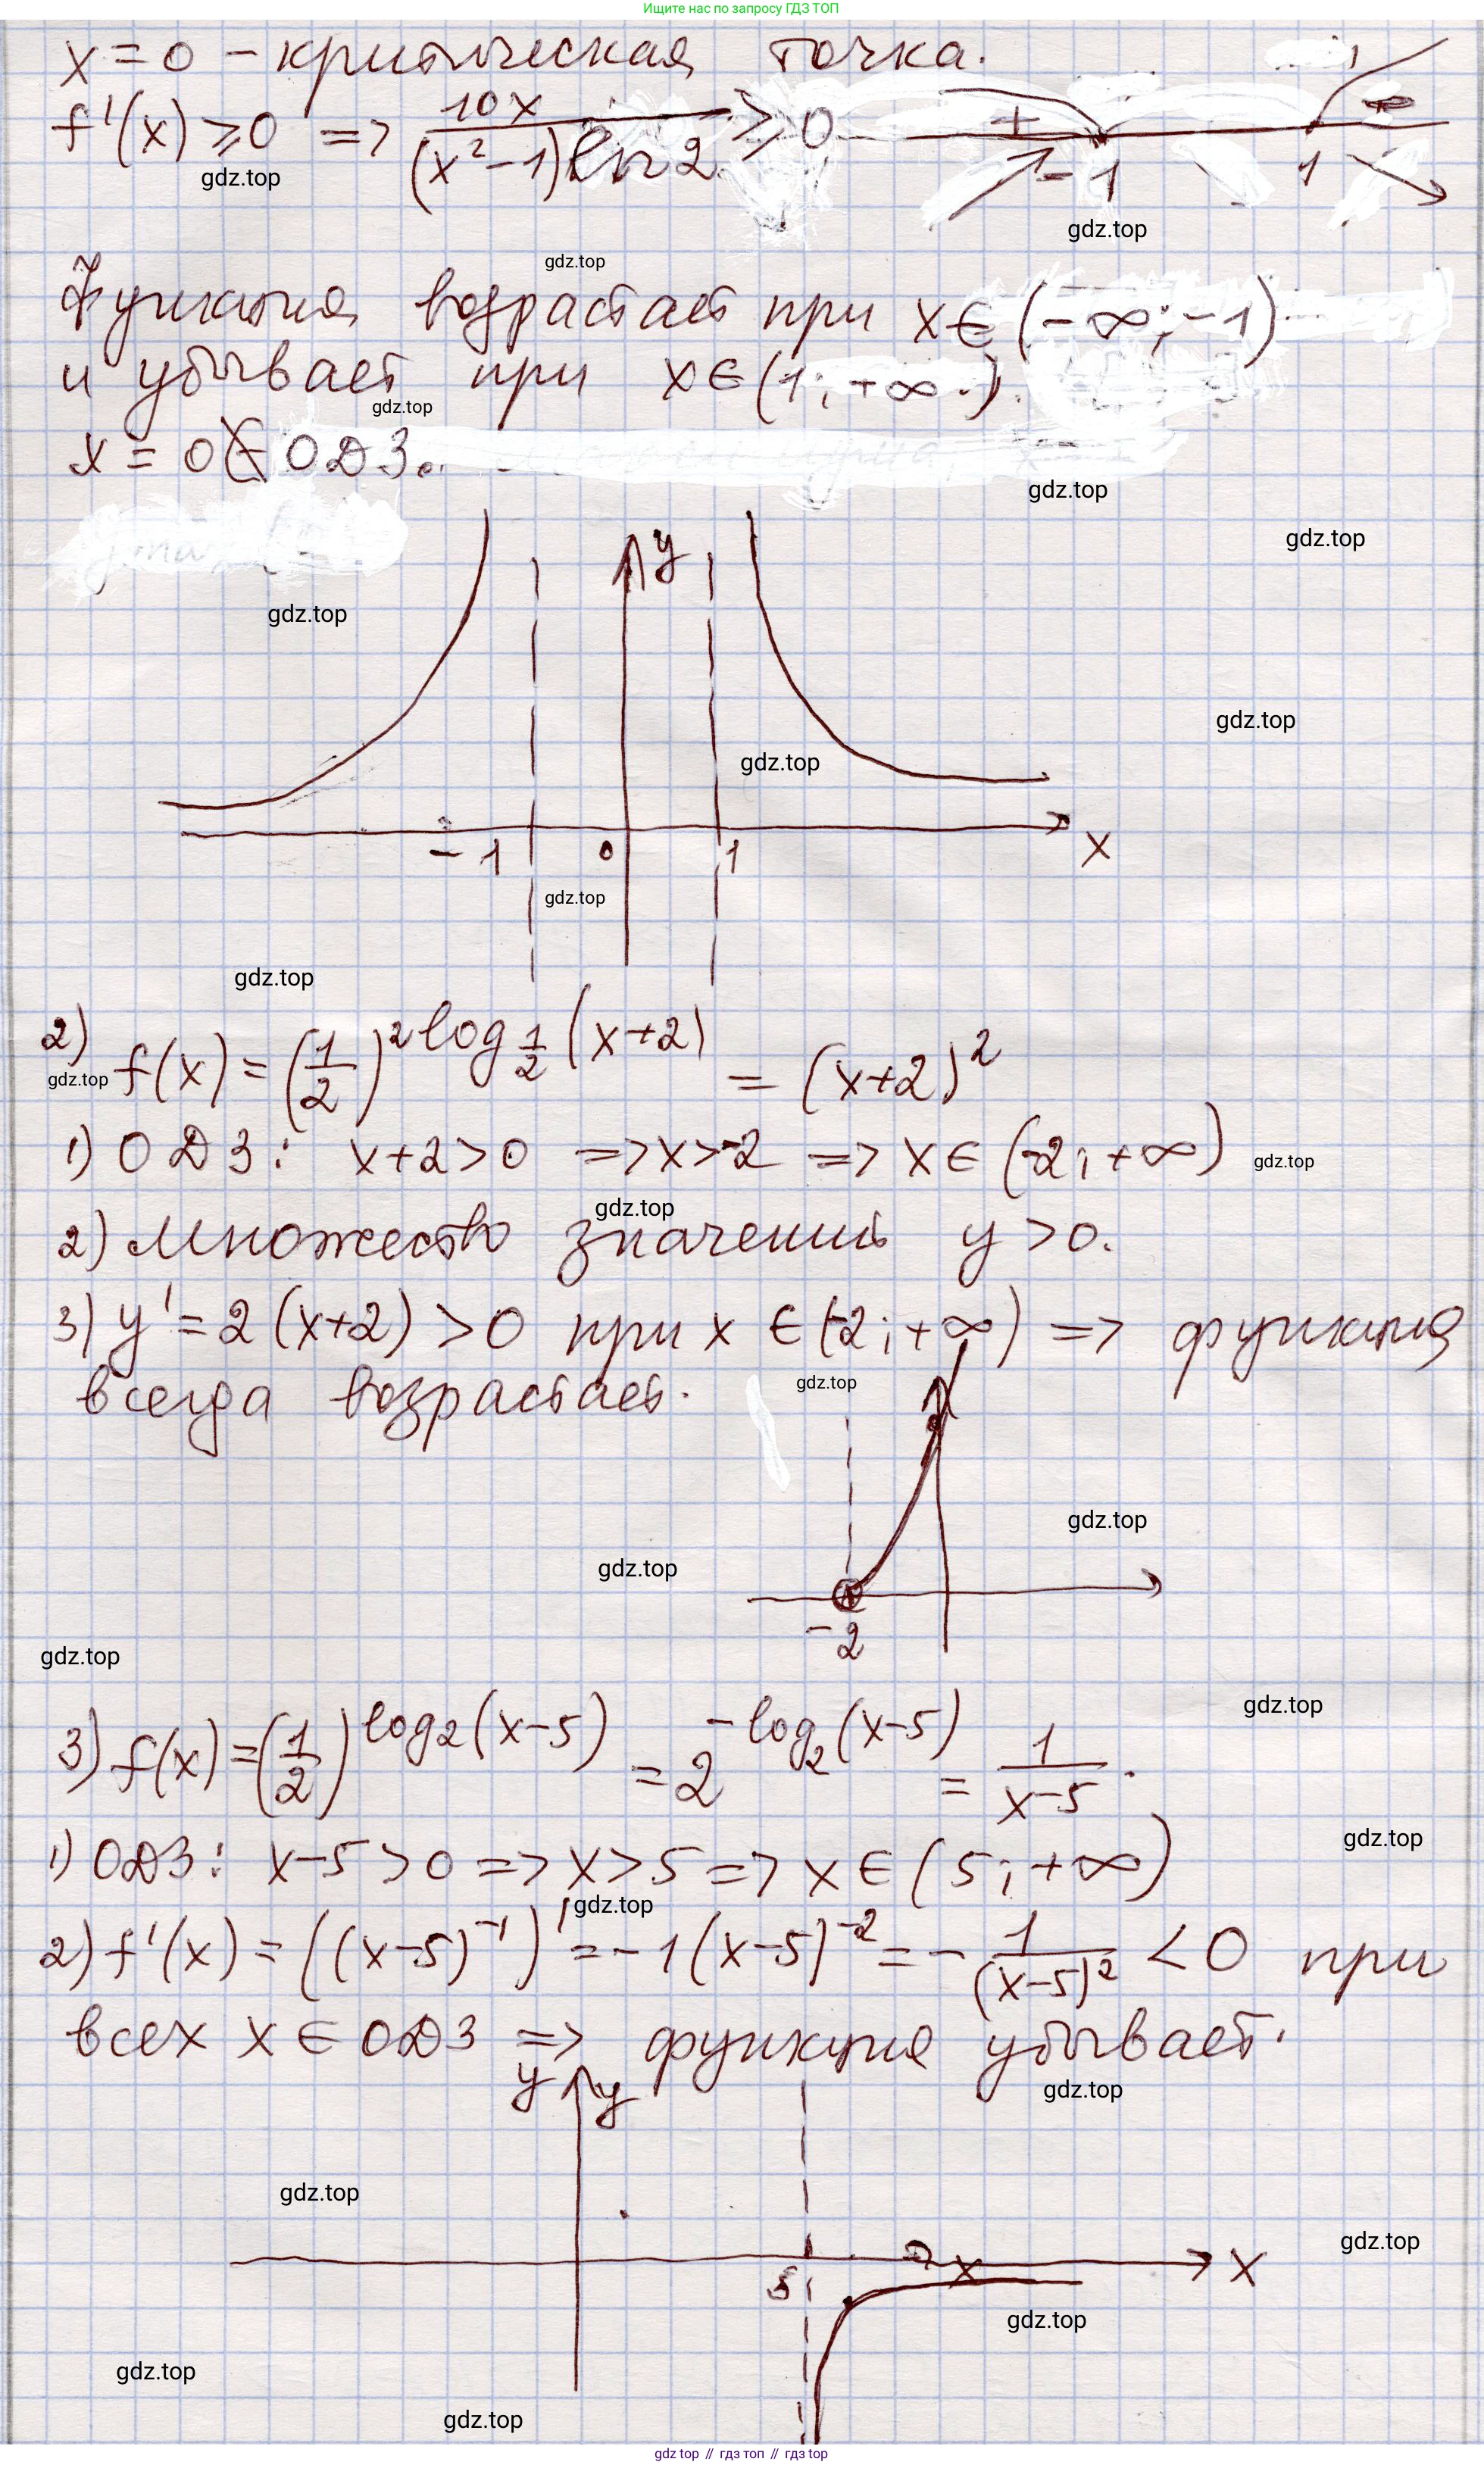 Ищите нас по запросу ГДЗ ТОП
x = 0 – критическая точка.
f'(x) ≥ 0 => 10x / (x² – 1) ln 2 ≥ 0 + – 1 1
gdz.top
gdz.top
gdz.top
Функция возрастает при x ∈ (–∞; –1)
и убывает при x ∈ (1; +∞).
gdz.top
x = 0 ∉ ОДЗ.
gdz.top
gdz.top
y
gdz.top
gdz.top
gdz.top
–1 0 1 x
gdz.top
gdz.top
2) f(x) = (1/2)^(2 log_(1/2) (x+2)) = (x+2)²
gdz.top
1) ОДЗ: x+2>0 => x>-2 => x ∈ (-2; +∞)
gdz.top
gdz.top
2) Множество значений y > 0.
3) y' = 2(x+2) > 0 при x ∈ (-2; +∞) => функция
всегда возрастает.
gdz.top
gdz.top
gdz.top
–2
gdz.top
gdz.top
3) f(x) = (1/2)^(log₂(x–5)) = 2^(–log₂(x–5)) = 1/(x–5).
gdz.top
1) ОДЗ: x–5>0 => x>5 => x ∈ (5; +∞)
gdz.top
2) f'(x) = ((x–5)⁻¹)' = –1(x–5)⁻² = – 1/(x–5)² < 0 при
всех x ∈ ОДЗ => функция убывает.
y y
gdz.top
gdz.top
gdz.top
5 x x
gdz.top
gdz.top
gdz.top
gdz top // гдз топ // гдз top